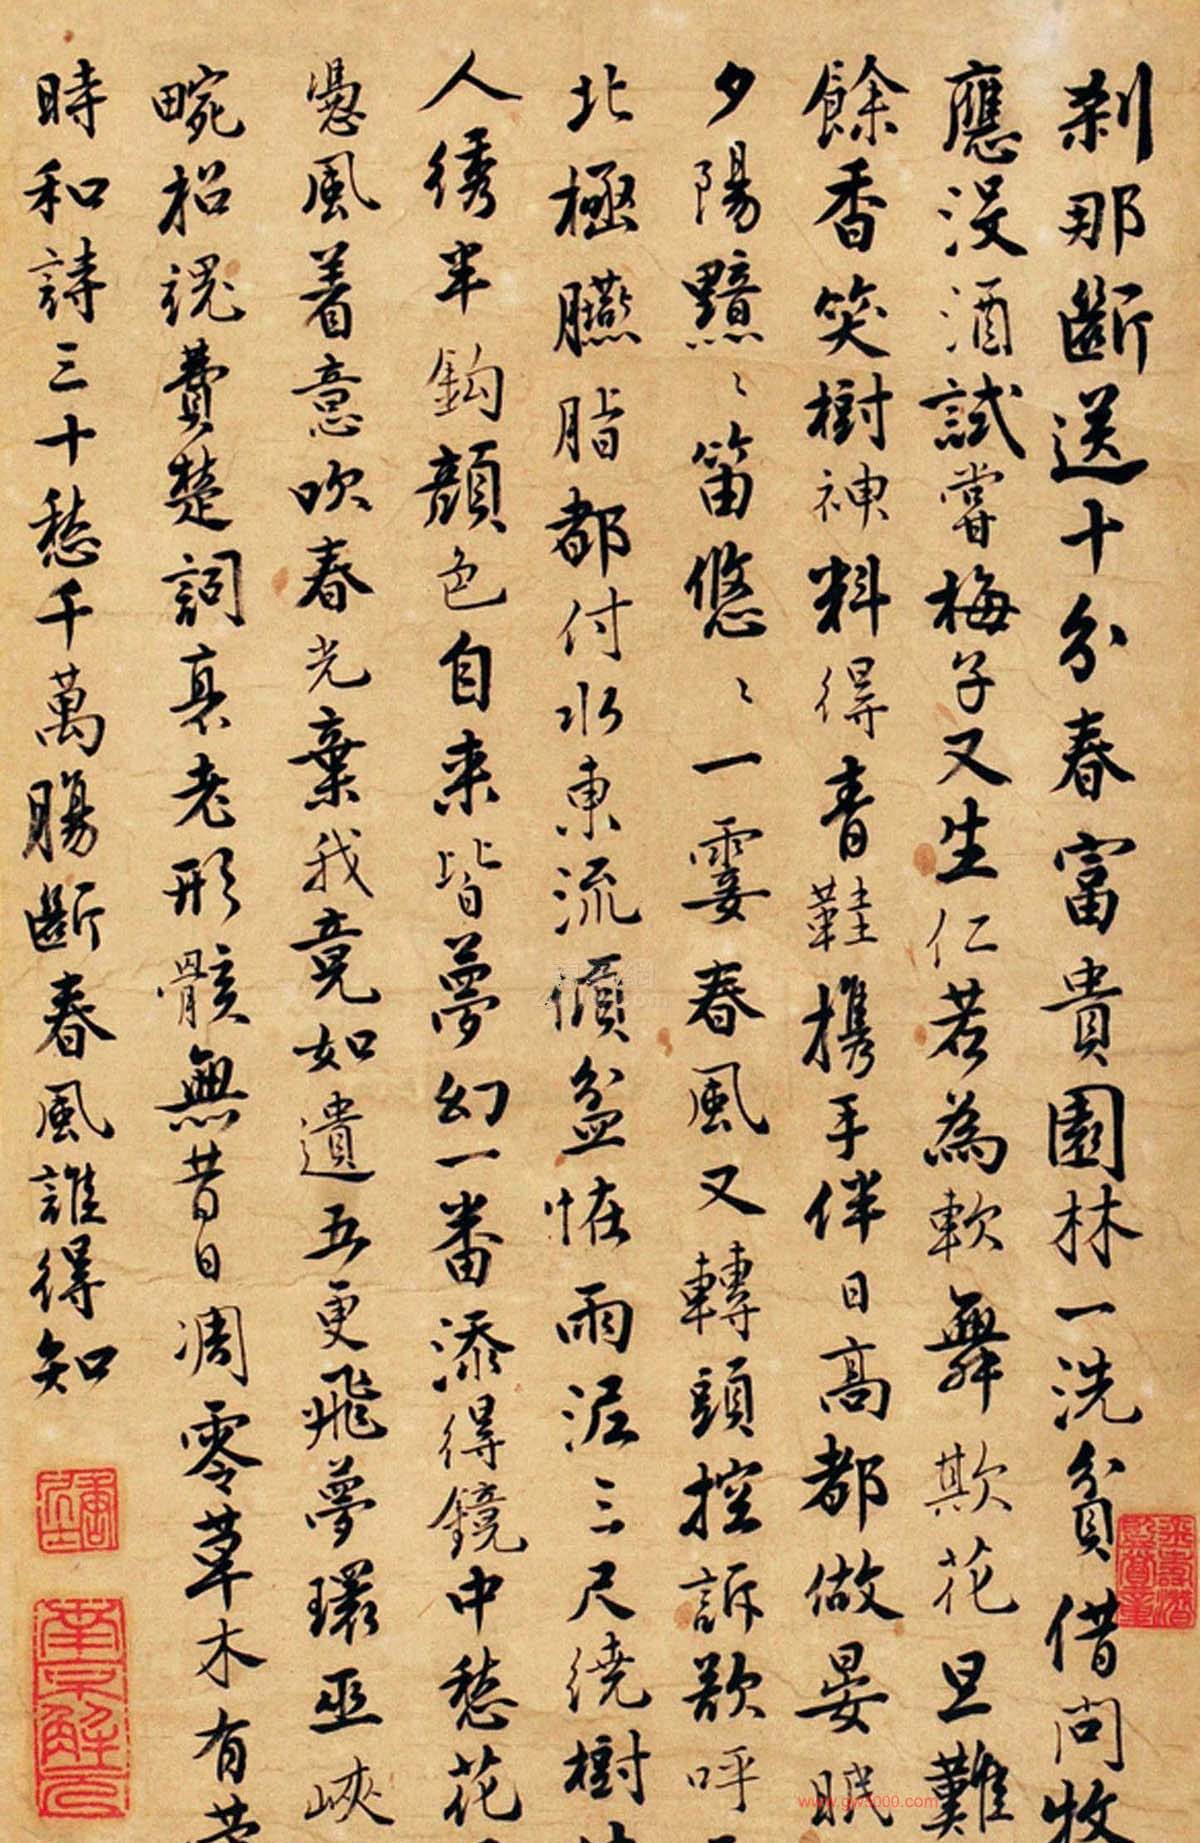 刹那斷送十分春富貴園林一洗貧借問牧
應沒酒試嘗梅子又生仁若為軟舞欺花旦難
餘香笑樹神料得青鞋攜手伴日高都做晏眠
夕陽黯〻笛悠〻一霎春風又轉頭控訴欲呼
北極臙脂都付水東流傾盆怪雨泥三尺繞樹
人綉半鈎顏色自来皆夢幻一番添得鏡中愁花
急風着意吹春光棄我竟如遺五更飛夢環巫峽
畹招魂費楚詞衰老形骸無昔日凋零草木有
時和詩三十愁千萬腸斷春風誰得知
南京解元
www.gw5000.com